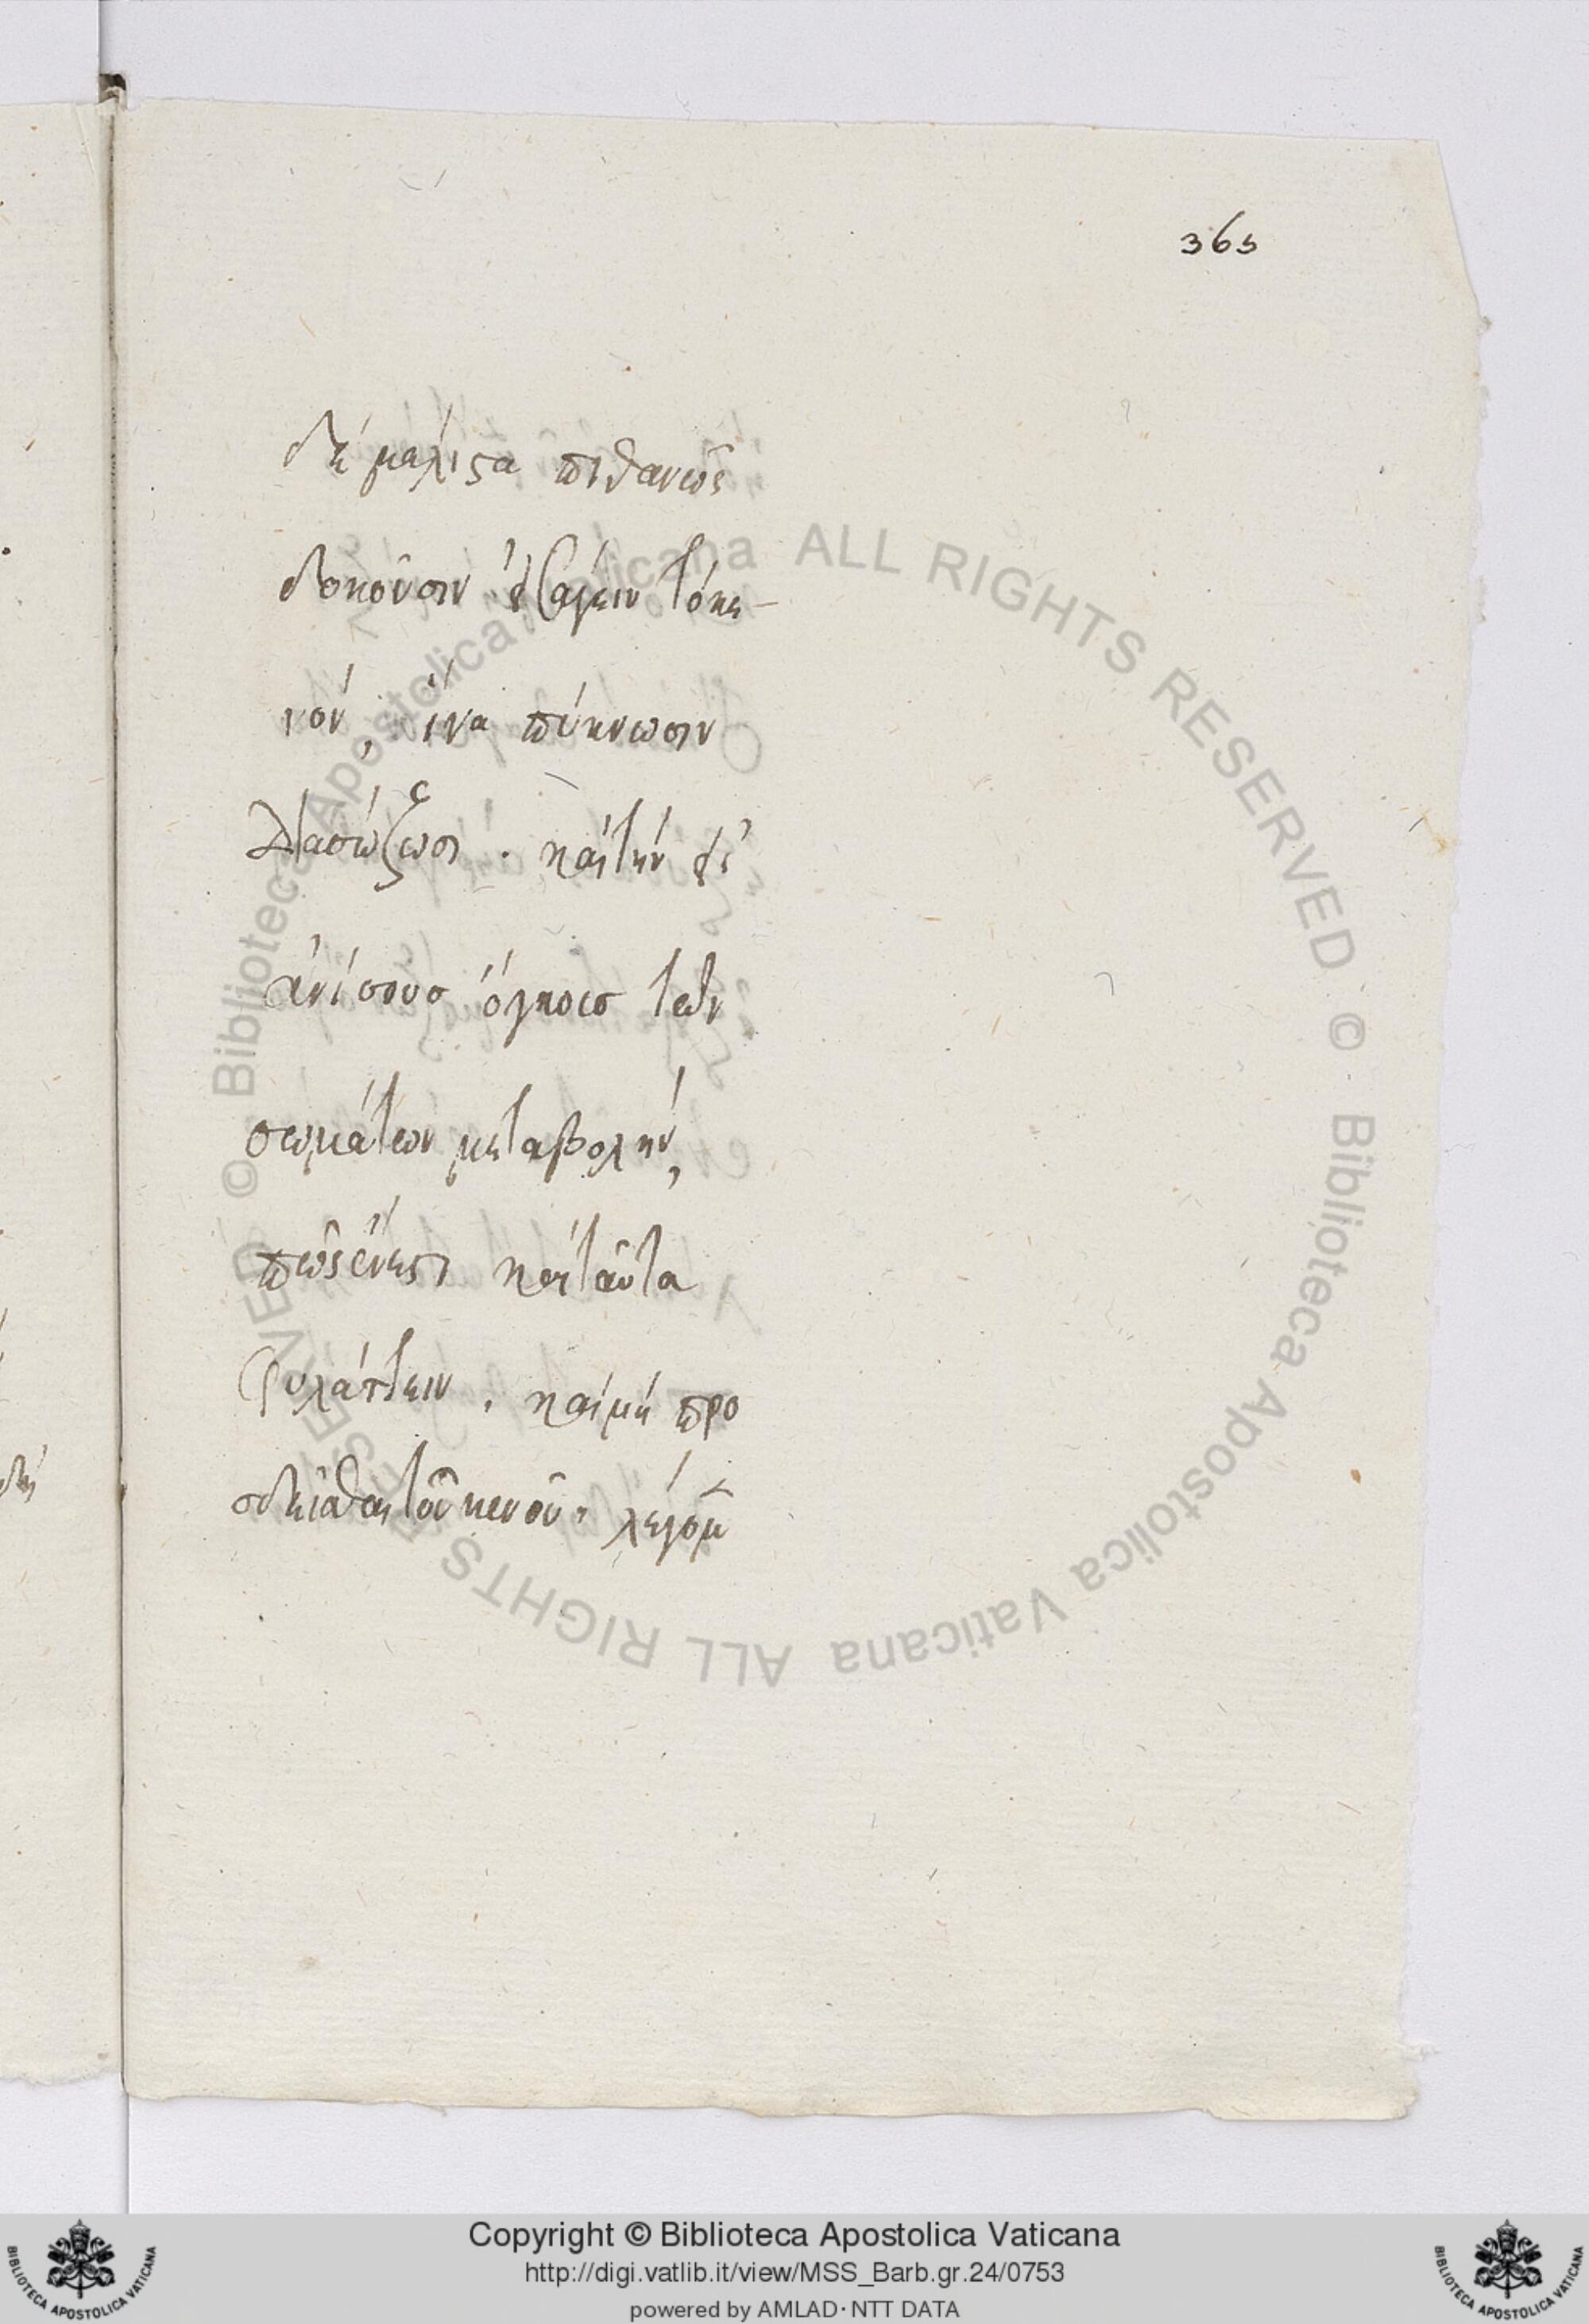 365
δὴ μάλιστα πιθανῶς
δοκοῦσιν ἐξάγειν τὸ κε-
νόν, ἵνα πύκνωσιν
διασώζωσι. καὶ τὴν εἰ
ἀνίσους ὄγκοις τῶν
σωμάτων μεταβολήν,
πῶς ἔνεστι καὶ ταῦτα
φυλάττειν. καὶ μὴ προ
σδεῖσθαι τοῦ κενοῦ. λέγομ
δὴ
© Biblioteca Apostolica Vaticana ALL RIGHTS RESERVED © Biblioteca Apostolica Vaticana ALL RIGHTS RESERVED
Copyright © Biblioteca Apostolica Vaticana
http://digi.vatlib.it/view/MSS_Barb.gr.24/0753
powered by AMLAD·NTT DATA
BIBLIOTECA APOSTOLICA VATICANA
BIBLIOTECA APOSTOLICA VATICANA